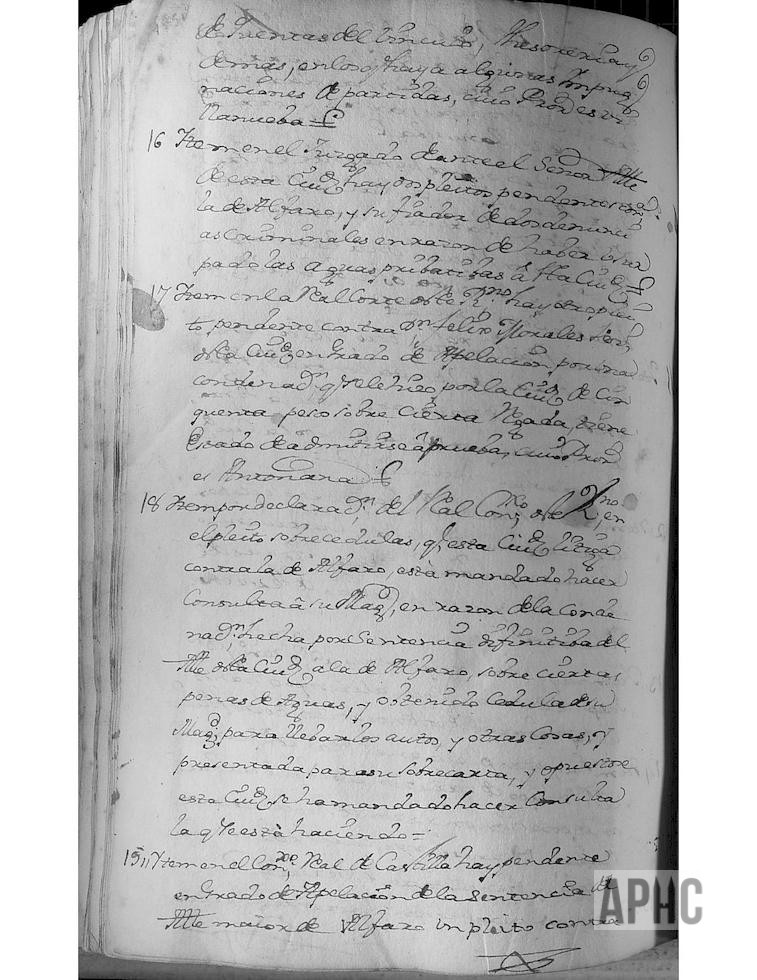 de Quentas del Vinculo, thesoreria y
demas, en los q̄ haya algunas Impug
naciones de partidas, cuio Proʳ es Vi
llanueba =
16 Item en el Juzgado de ante el Señor Alle
de esta Ciuᵈ hay dos pleitos pendentes con
la de Alfaro, y su fiador de dos denunci
as Criminales en razon de haber usur
pado las aguas pribatibas â dha Ciuᵈ =
17 Item en la Real Corte de este Rⁿᵒ hay otro pleí
to, pendente contra Dⁿ Felix Morales
dla Ciuᵈ en Grado de Apelacion, por una
condenaᵒⁿ q̄ se le hizo por la Ciuᵈ de Cin
quenta pesos sobre Cierta Regada, tiene
Estado de admitirse â prueba, cuio Proʳ
es Antoñana
18 Item por declaraᵒⁿ del Real Conˢᵒ de este Rⁿᵒ, en
el pleito sobre cedulas, q̄ esta Ciuᵈ litiga
contra la de Alfaro, està mandado hacer
Consulta â su Magᵈ, en razon de la Conde
naᵒⁿ hecha por Sentencia difinitiba del
Alle dla Ciuᵈ a la de Alfaro, sobre ciertas
penas de Aguas, y obtenido Cedula de su
Magᵈ para llebar los autos, y otras Cosas, y
presentada para su sobrecarta, y opuestose
esta Ciuᵈ se ha mandado hacer Consulta
la q̄ se està haciendo =
19 Item en el Conˢᵒ Real de Castilla hay pendente
en Grado de Apelacion de la sentencia del
Alle maior de Alfaro un pleito contra
APHC